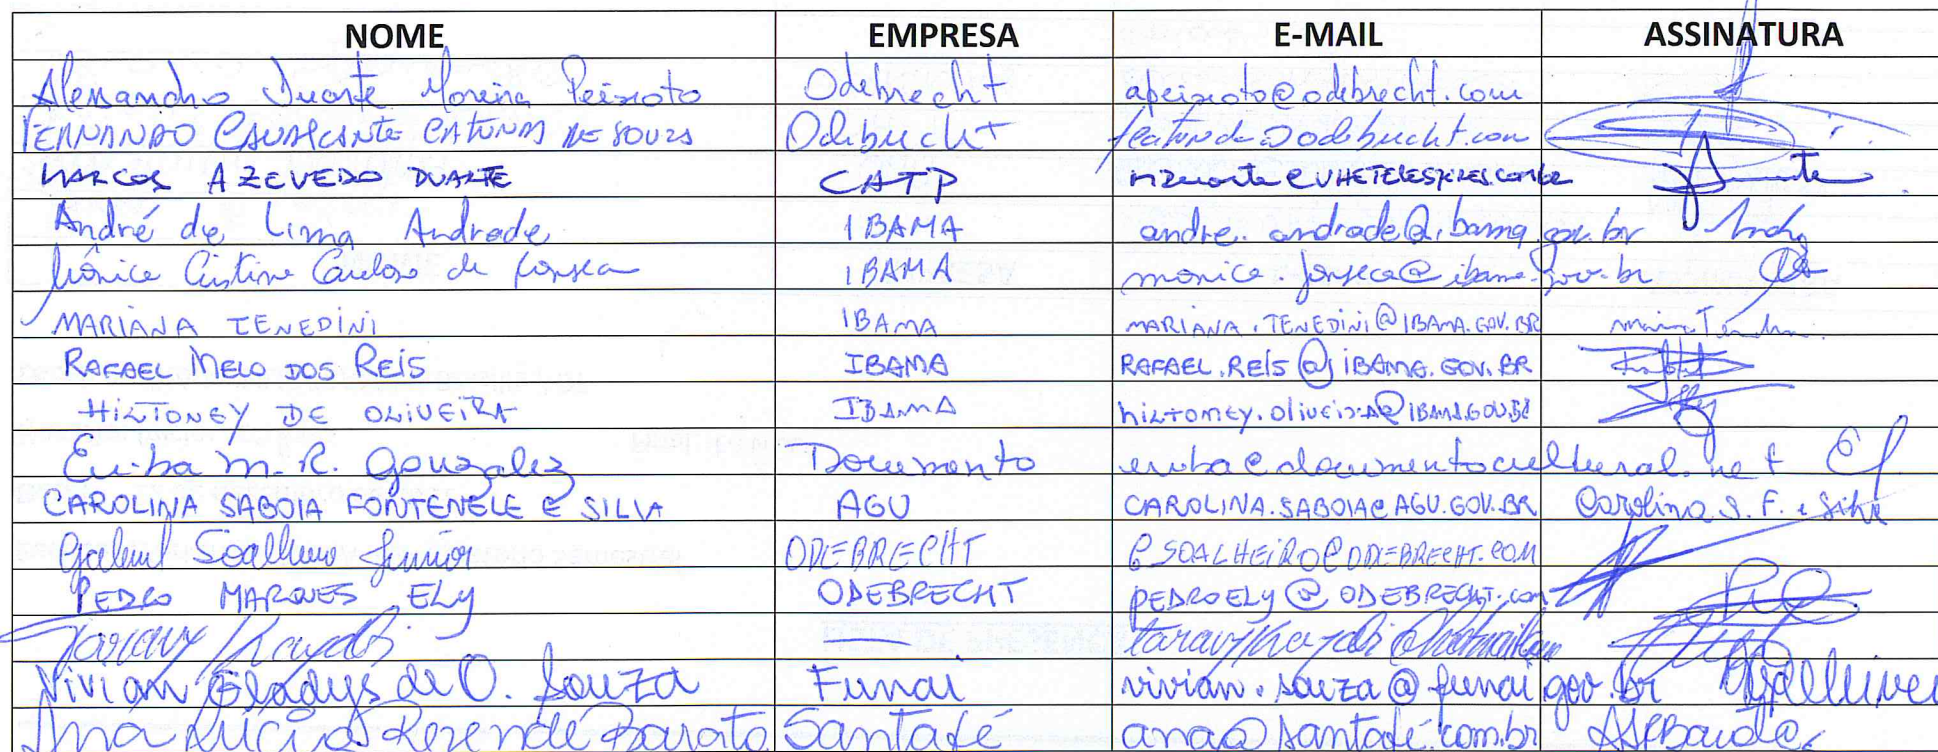 NOME EMPRESA E-MAIL ASSINATURA
Alessandro Duarte Moreira Peixoto Odebrecht apeixoto@odebrecht.com
FERNANDO CAVALCANTE CATUNDA DE SOUZA Odebrecht fcatunda@odebrecht.com
MARCOS AZEVEDO DUARTE CATP
André de Lima Andrade IBAMA andre.andrade@ibama.gov.br André
Mônica Cristina Cardoso da Fonseca IBAMA monica.fonseca@ibama.gov.br
MARIANA TENEDINI IBAMA MARIANA.TENEDINI@IBAMA.GOV.BR
RAFAEL MELO DOS REIS IBAMA RAFAEL.REIS@IBAMA.GOV.BR
HILTONEY DE OLIVEIRA IBAMA hiltoney.oliveira@IBAMA.GOV.BR
Erika M. R. Gonzalez Documento erika@documentocultural.net
CAROLINA SABOIA FONTENELE E SILVA AGU CAROLINA.SABOIA@AGU.GOV.BR Carolina S. F. e Silva
Soalheiro Júnior ODEBRECHT GSOALHEIRO@ODEBRECHT.COM
PEDRO MARQUES ELY ODEBRECHT PEDROELY@ODEBRECHT.com
Vivian Gladys de O. Souza Funai vivian.souza@funai.gov.br
Ana Lúcia Rezende Barata Santafé ana@santafe.com.br